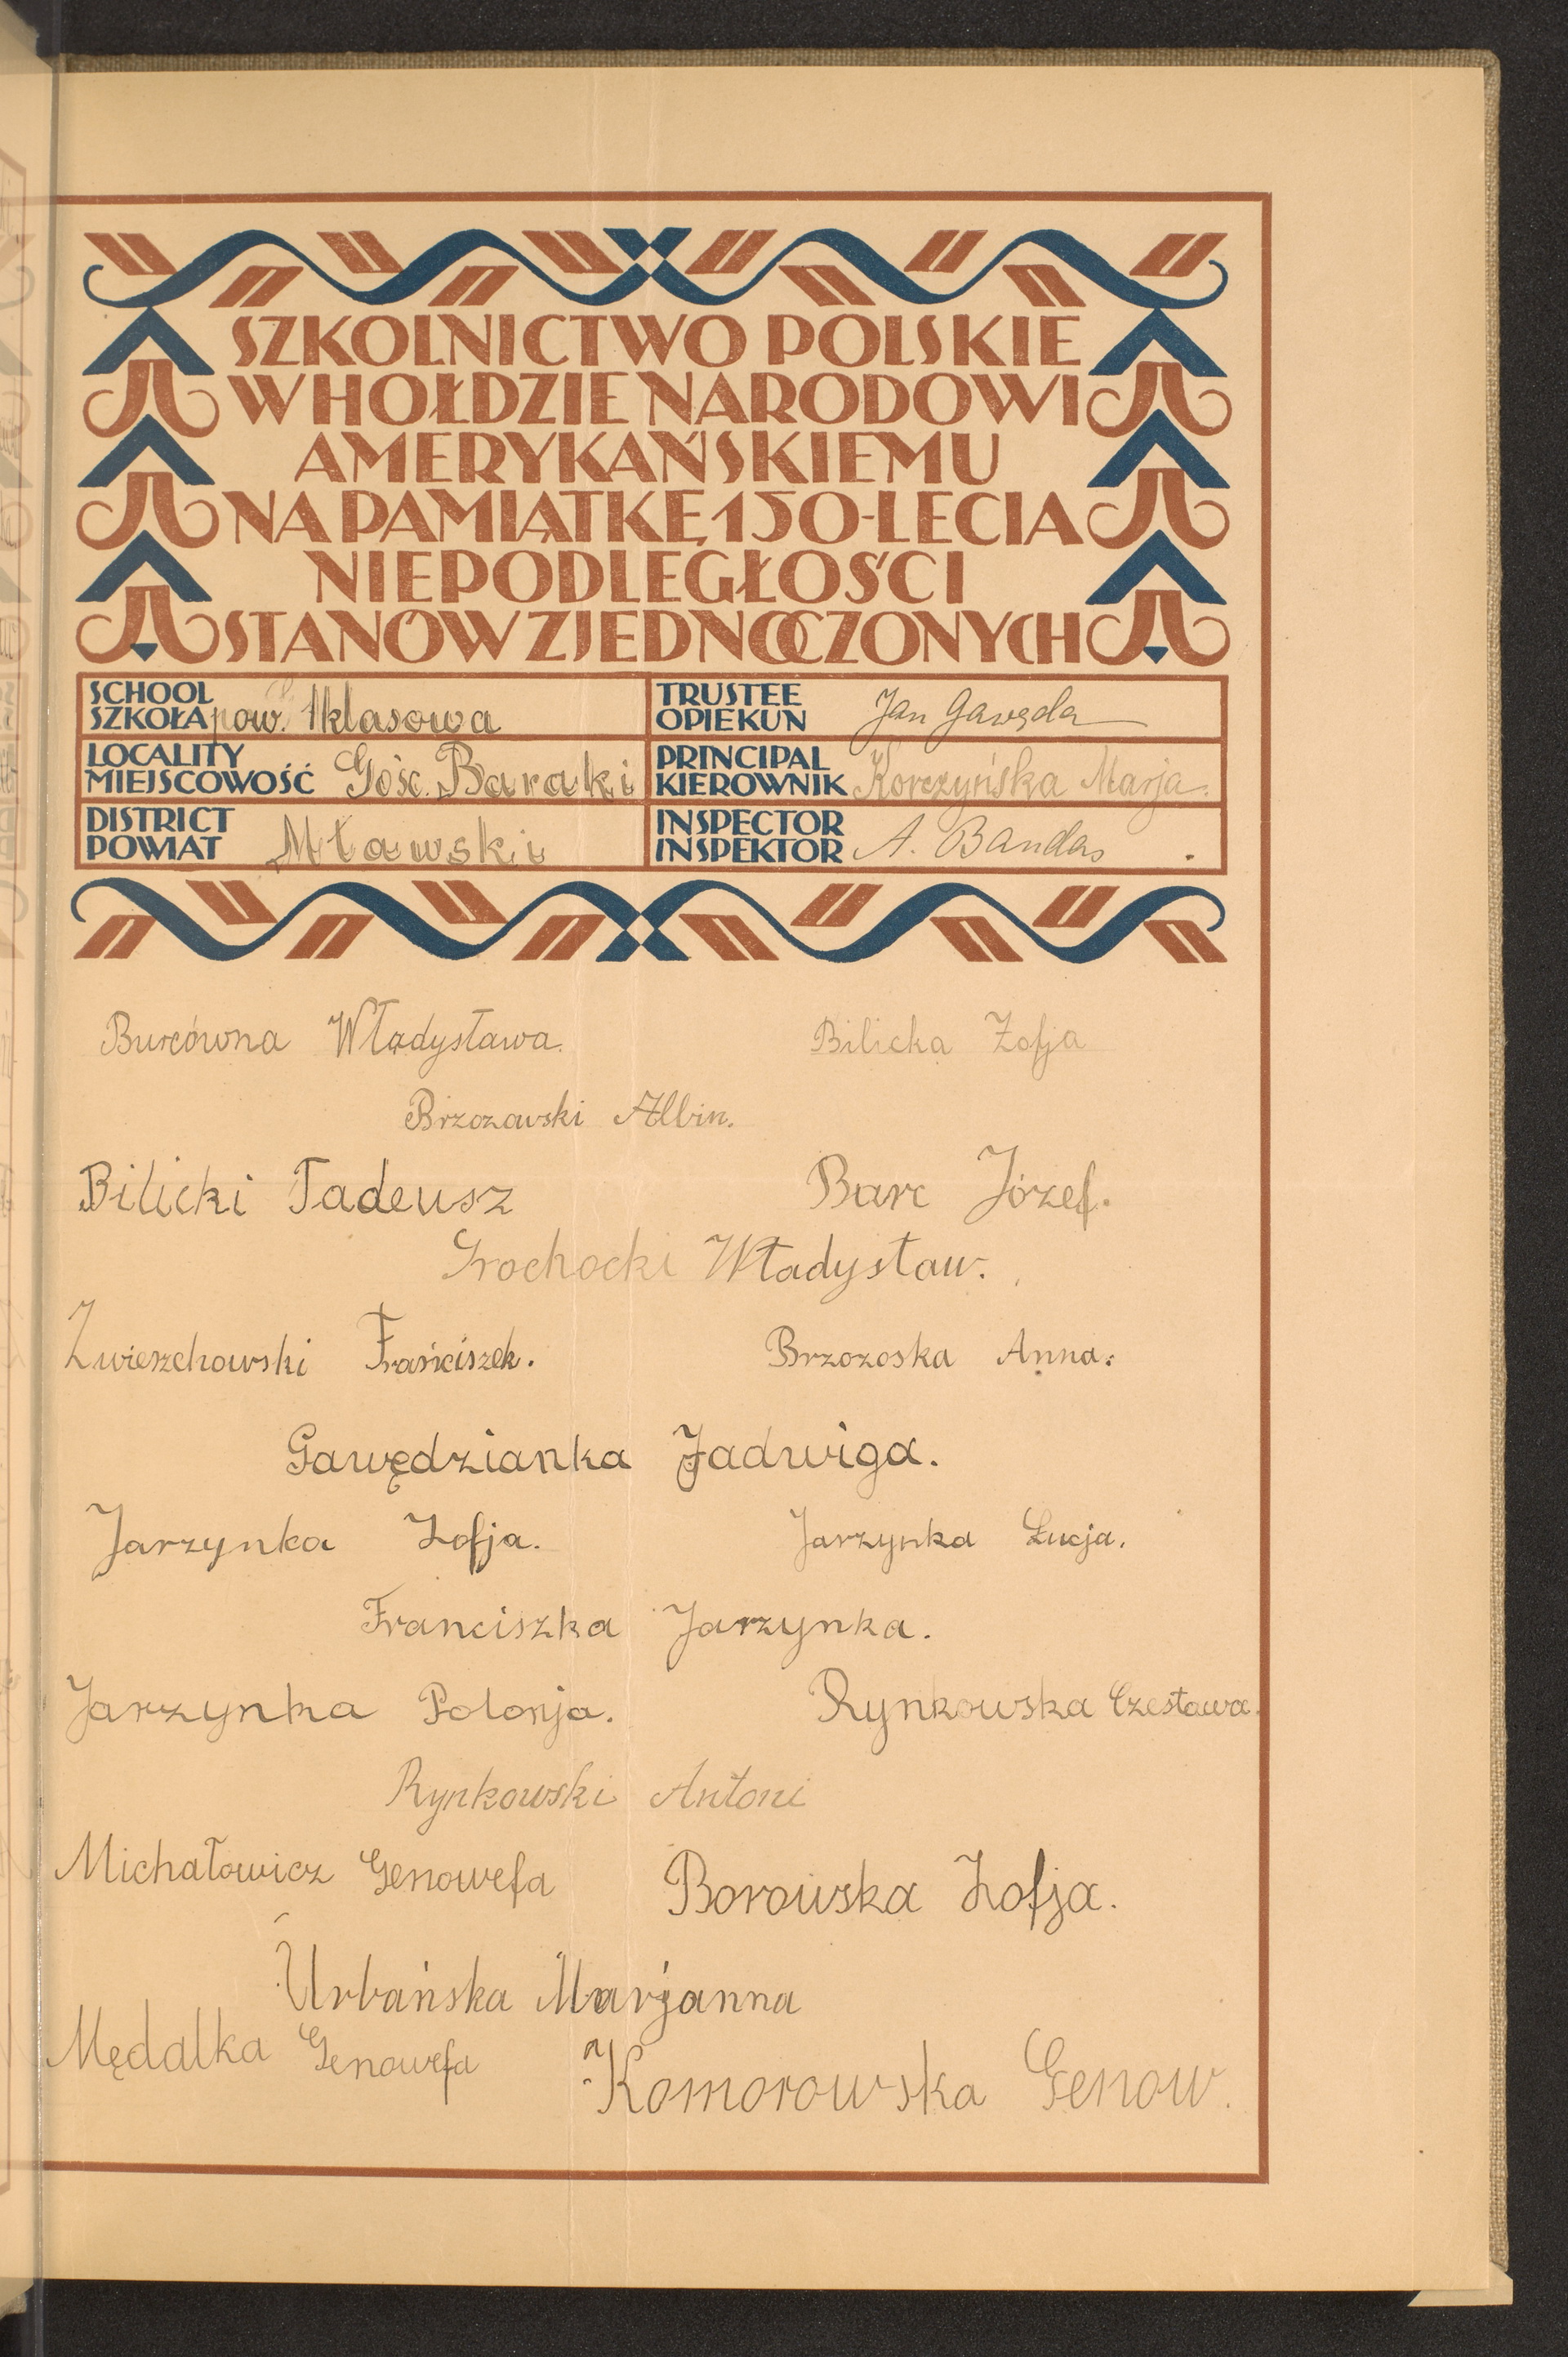 SZKOLNICTWO POLSKIE
W HOŁDZIE NARODOWI
AMERYKAŃSKIEMU
NA PAMIĄTKĘ 150-LECIA
NIEPODLEGŁOŚCI
STANÓW ZJEDNOCZONYCH
SCHOOL
SZKOŁA pow. 1 klasowa
TRUSTEE
OPIEKUN Jan Gawęda
LOCALITY
MIEJSCOWOŚĆ Gośc. Baraki
PRINCIPAL
KIEROWNIK Korczyńska Marja.
DISTRICT
POWIAT Mławski
INSPECTOR
INSPEKTOR A. Bandas
Burcówna Władysława. Bilicka Zofja
Brzozowski Albin.
Bilicki Tadeusz Barc Józef.
Grochocki Władysław.
Zwierzchowski Frańciszek. Brzozoska Anna.
Gawędzianka Jadwiga.
Jarzynka Zofja. Jarzynka Łucja.
Franciszka Jarzynka.
Jarzynka Polonja. Rynkowska Czesława.
Rynkowski Antoni
Michałowicz Genowefa Borowska Zofja.
Urbańska Marjanna
Mędalka Genowefa Komorowska Genow.